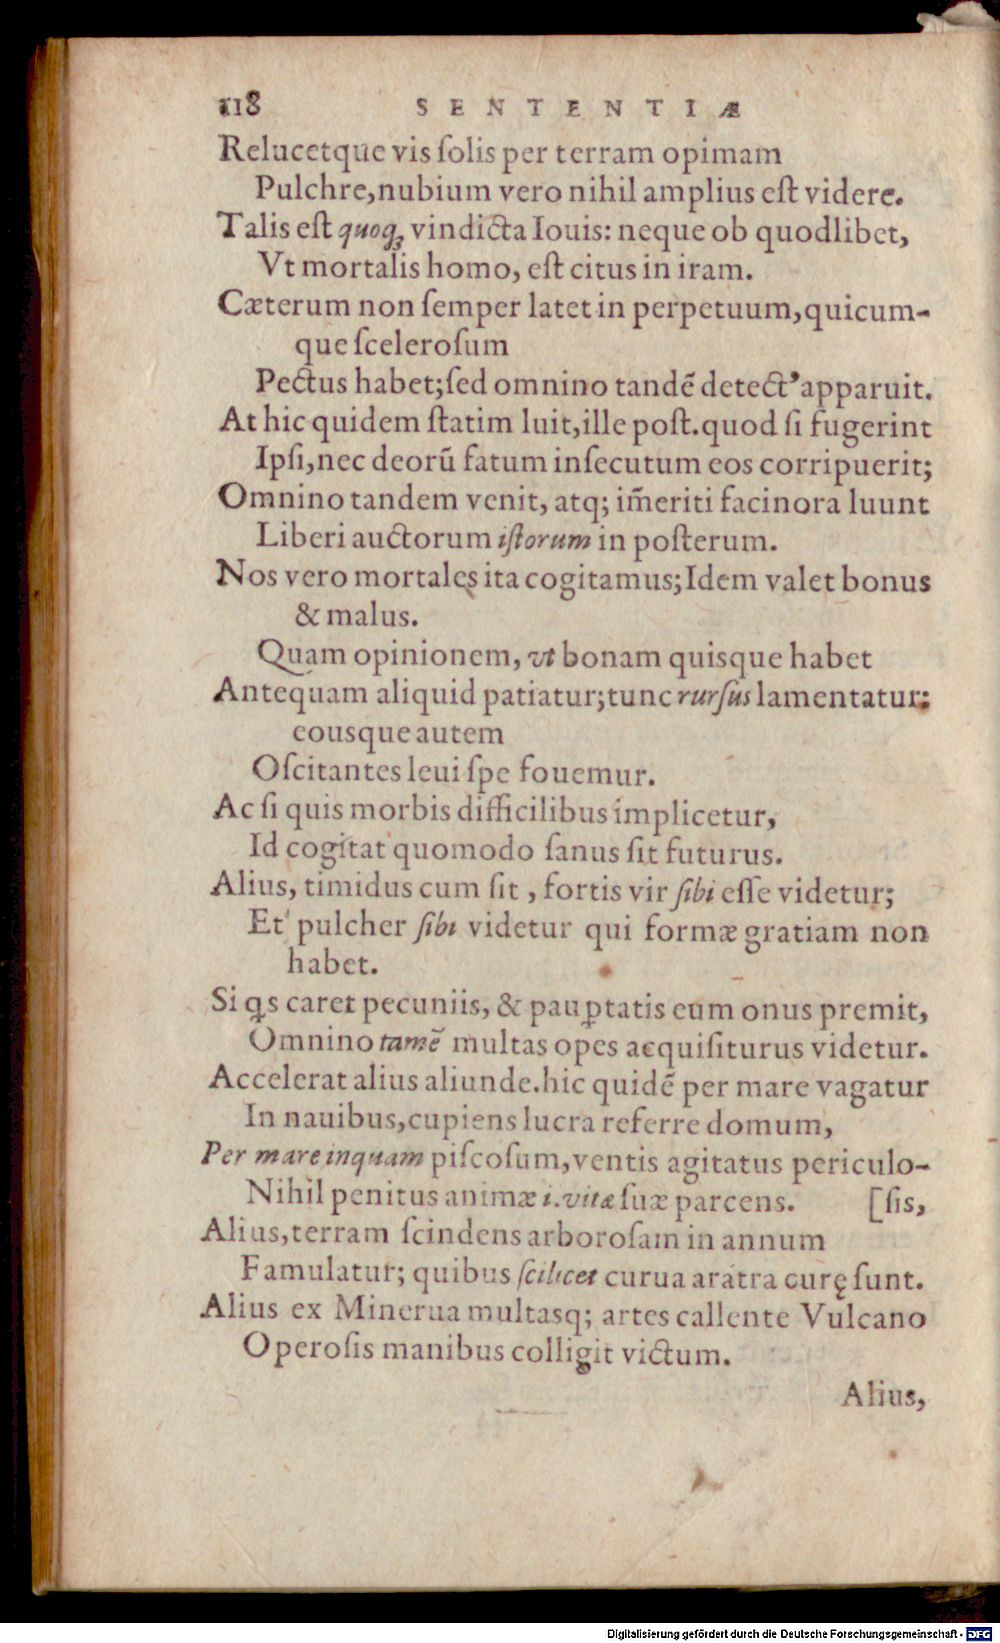 118 SENTENTIÆ
Relucetque vis ſolis per terram opimam
Pulchre, nubium vero nihil amplius eſt videre.
Talis eſt quoqꝫ vindicta Iouis: neque ob quodlibet,
Vt mortalis homo, eſt citus in iram.
Cæterum non ſemper latet in perpetuum, quicum-
que ſceleroſum
Pectus habet; ſed omnino tandē detect' apparuit.
At hic quidem ſtatim luit, ille poſt. quod ſi fugerint
Ipſi, nec deorū fatum inſecutum eos corripuerit;
Omnino tandem venit, atq; im̄eriti facinora luunt
Liberi auctorum iſtorum in poſterum.
Nos vero mortales ita cogitamus; Idem valet bonus
& malus.
Quam opinionem, vt bonam quisque habet
Antequam aliquid patiatur; tunc rurſus lamentatur:
eousque autem
Oſcitantes leui ſpe fouemur.
Ac ſi quis morbis difficilibus implicetur,
Id cogitat quomodo ſanus ſit futurus.
Alius, timidus cum ſit, fortis vir ſibi eſſe videtur;
Et pulcher ſibi videtur qui formæ gratiam non
habet.
Si qs caret pecuniis, & pauꝑtatis eum onus premit,
Omnino tamē multas opes acquiſiturus videtur.
Accelerat alius aliunde. hic quidē per mare vagatur
In nauibus, cupiens lucra referre domum,
Per mare inquam piſcoſum, ventis agitatus periculo-
Nihil penitus animæ i. vitæ ſuæ parcens. [ſis,
Alius, terram ſcindens arboroſam in annum
Famulatur; quibus ſcilicet curua aratra curę ſunt.
Alius ex Minerua multasq; artes callente Vulcano
Operoſis manibus colligit victum.
Alius,
Digitalisierung gefördert durch die Deutsche Forschungsgemeinschaft - DFG